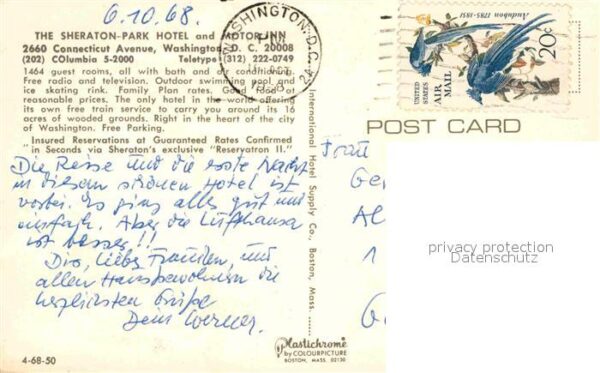 6.10.68.
THE SHERATON-PARK HOTEL and MOTOR INN
2660 Connecticut Avenue, Washington, D. C. 20008
(202) COlumbia 5-2000 Teletype (312) 222-0749
1464 guest rooms, all with bath and air conditioning.
Free radio and television. Outdoor swimming pool and
ice skating rink. Family Plan rates. Good food
reasonable prices. The only hotel in the world offering
its own free train service to carry you around its 16
acres of wooded grounds. Right in the heart of the city
of Washington. Free Parking.
"Insured Reservations at Guaranteed Rates Confirmed
in Seconds via Sheraton's exclusive "Reservatron II."
Die Reise und die erste Nacht
in diesem schönen Hotel ist
vorbei. Es ging alles gut und
einfach. Aber die Lufthansa
ist besser!!
Dir, liebes Frauchen, und
allen Hausbewohnern die
herzlichsten Grüße
Dein Werner.
4-68-50
Plastichrome
by COLOURPICTURE
BOSTON, MASS. 02130
International Hotel Supply Co., Boston, Mass.
WASHINGTON, D.C.
Audubon 1785-1851
20c
UNITED STATES
AIR MAIL
POST CARD
Frau
Ge
Al
1
G
privacy protection
Datenschutz